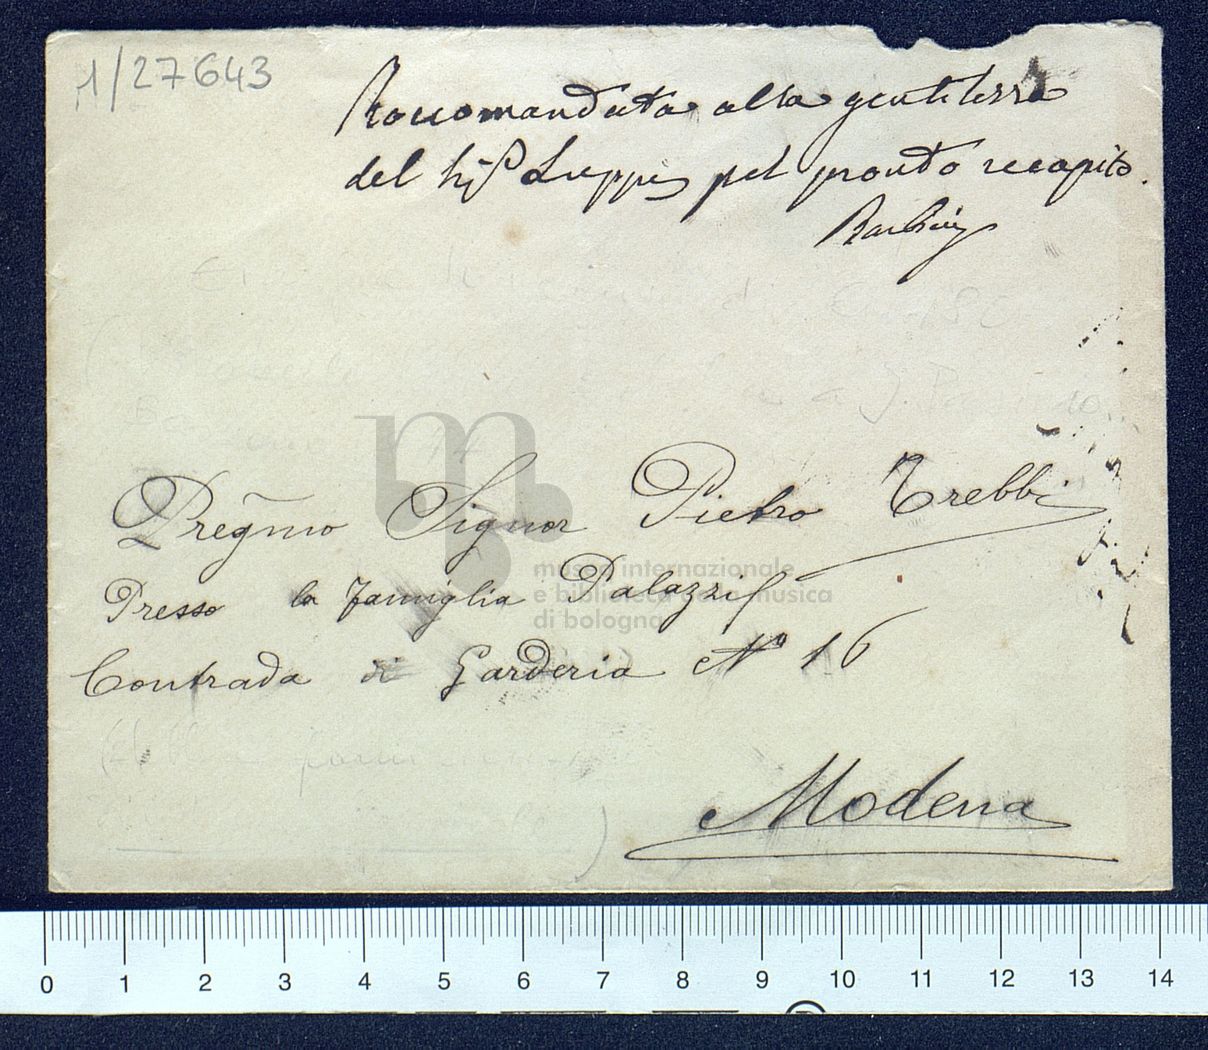 1/27643
Raccomandata alla gentilezza
del Sigr Luppi pel pronto recapito.
Barbieri
Pregmo Signor Pietro Trebbi
Presso la famiglia Palazzi
Contrada di Garderia No 16
Modena
museo internazionale
e biblioteca della musica
di bologna
0 1 2 3 4 5 6 7 8 9 10 11 12 13 14